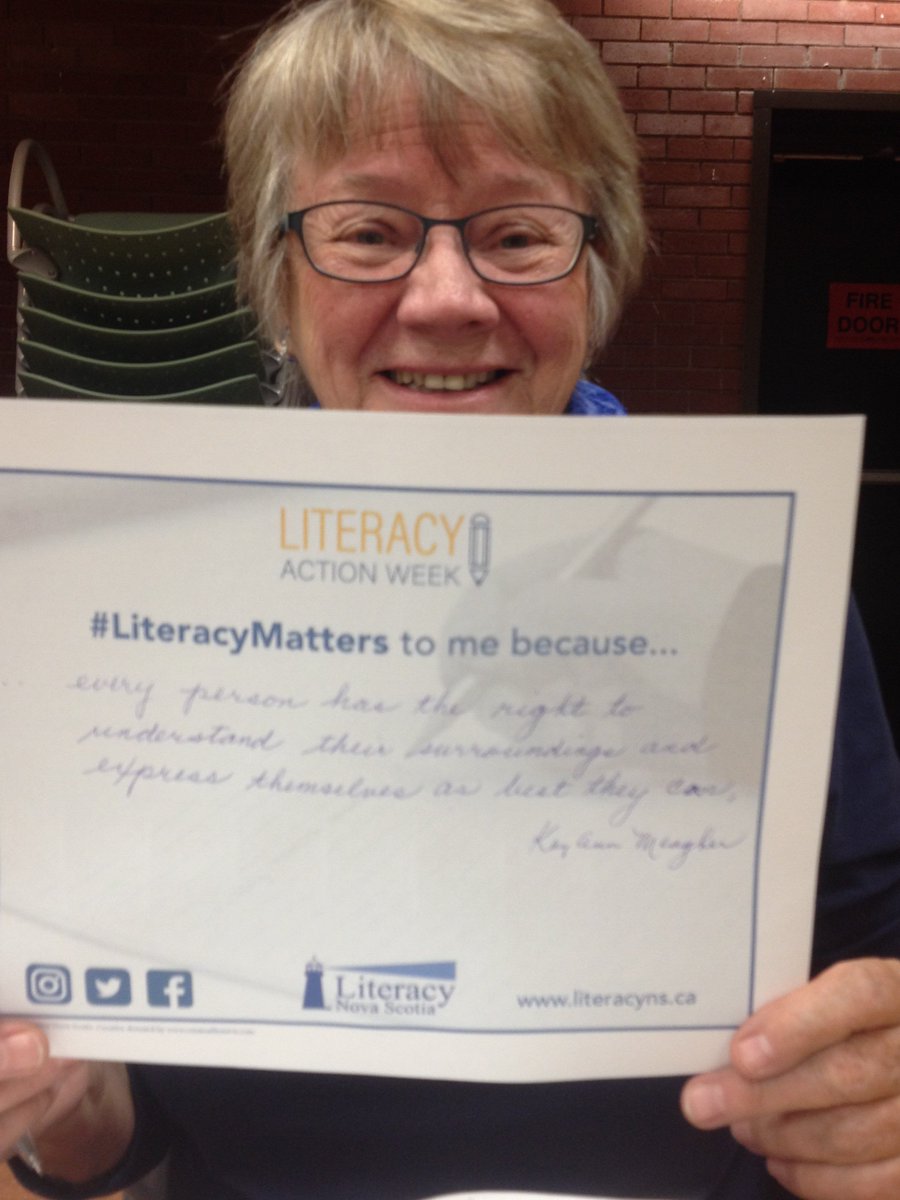 FIRE
DOOR
LITERACY
ACTION WEEK
#LiteracyMatters to me because...
... every person has the right to
understand their surroundings and
express themselves as best they can.
Kay Ann Meagher
Literacy
Nova Scotia
www.literacyns.ca